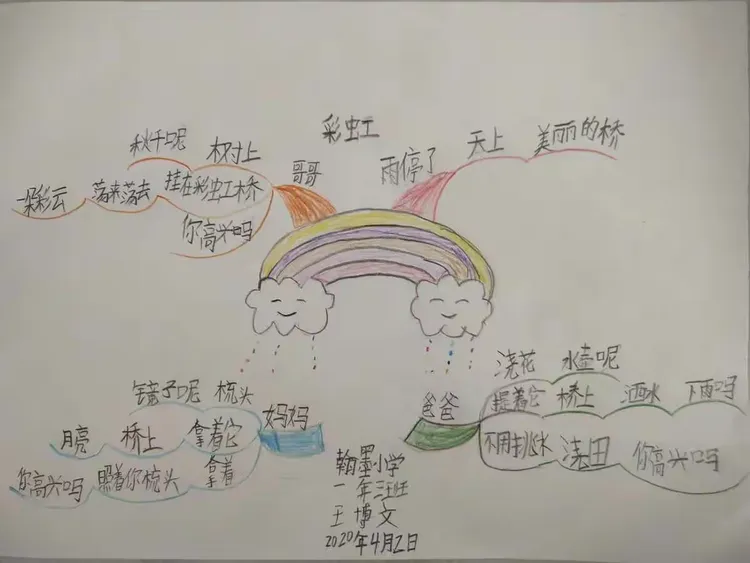 彩虹
雨停了
天上
美丽的桥
爸爸
浇花
水壶呢
提着它
桥上
洒水
下雨吗
不用挑水
浇田
你高兴吗
妈妈
镜子呢
梳头
拿着它
桥上
月亮
拿着
照着你梳头
你高兴吗
哥哥
秋千呢
树上
挂在彩虹桥
荡来荡去
一朵彩云
你高兴吗
翰墨小学
一年三班
王博文
2020年4月2日